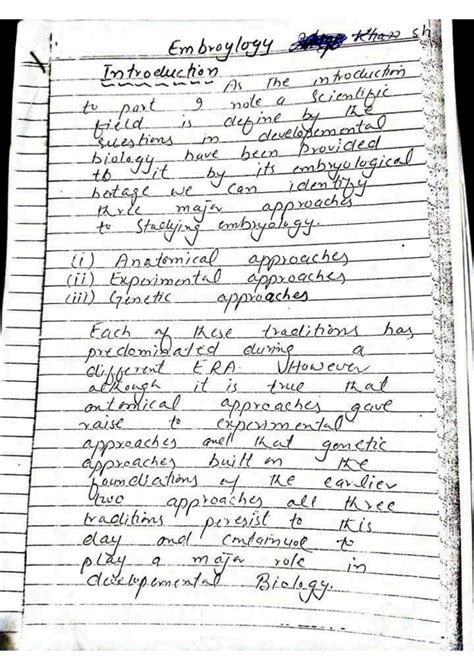 Embroylogy Khan sh
Introduction
As The introduction
to part 9 note a Scientific
field is define by the
questions in developemental
biology have been provided
to it by its embryological
hertage we can identify
three major approaches
to Studying embryology.
(i) Anatomical approaches
(ii) Experimental approaches
(iii) Genetic approaches
Each of these traditions has
predominated during a
different ERA. However
although it is true that
antomical approaches gave
raise to experimental
approaches and that genetic
approaches built on the
foundiations of the earlier
two approaches all three
traditions peresist to this
day and containuoe to
play a major role in
developemental Biology.